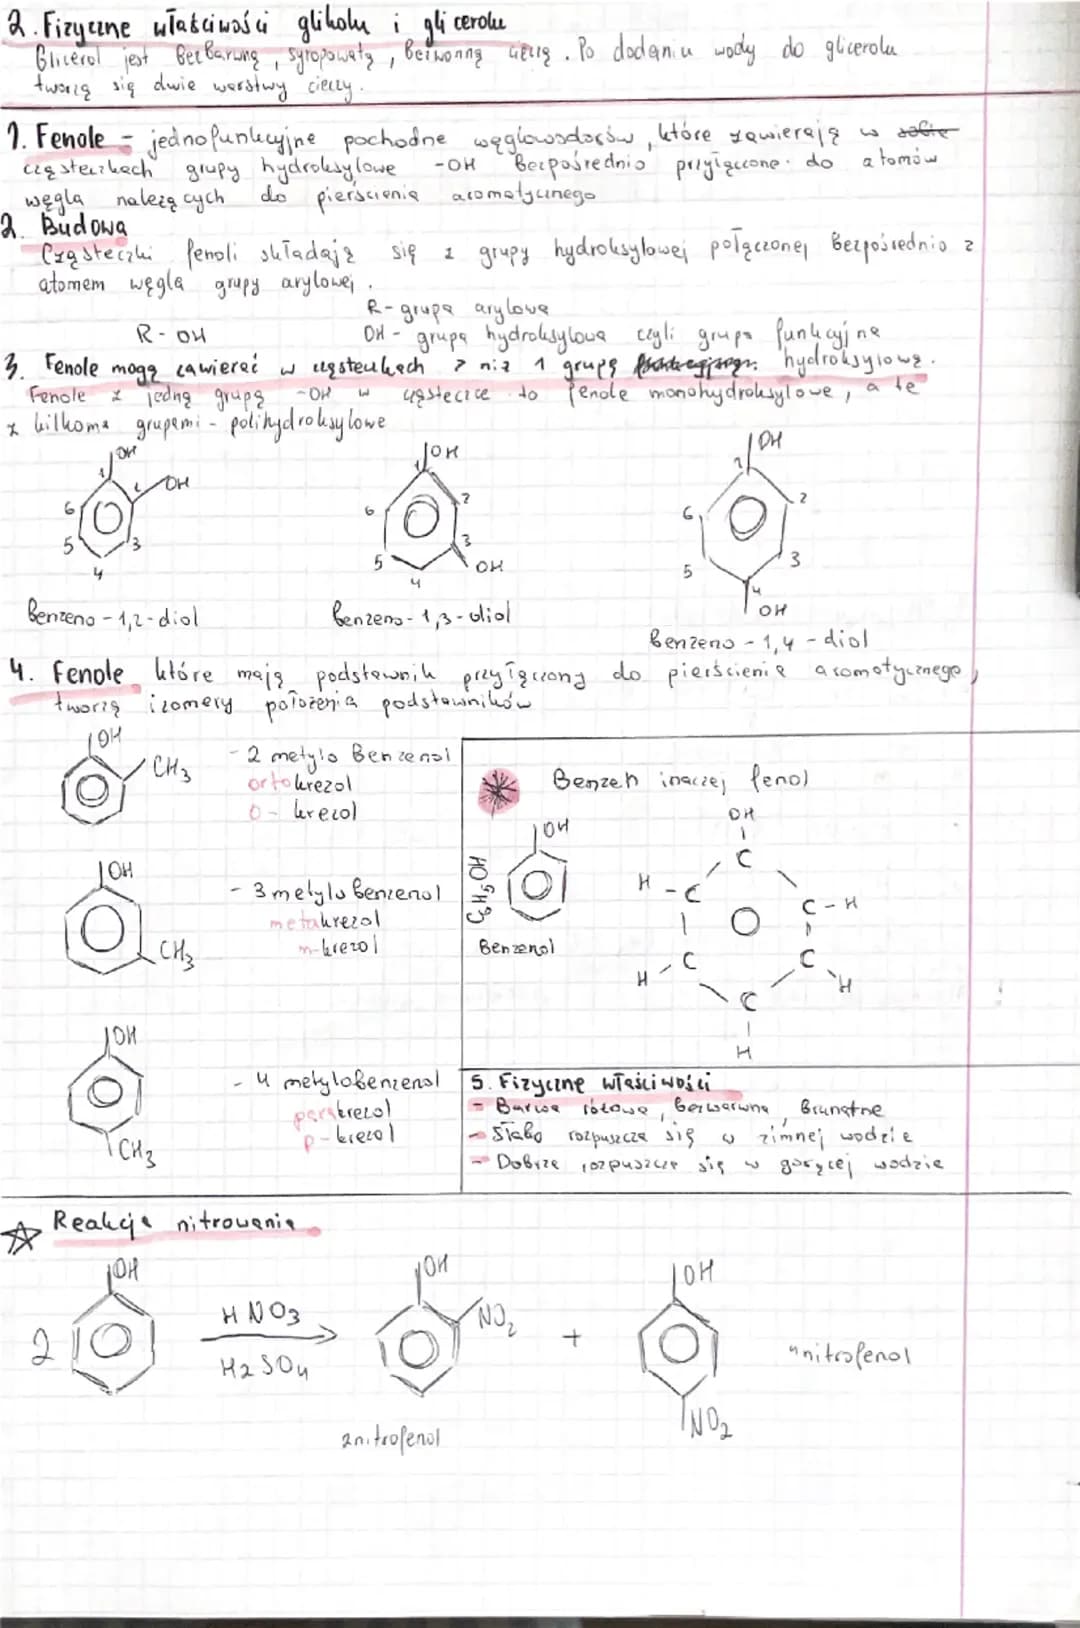 2. Fizyczne właściwości glikolu i glicerolu
Glicerol jest bezbarwną, syropowatą, bezwonną cieczą. Po dodaniu wody do glicerolu
tworzą się dwie warstwy cieczy.
1. Fenole - jednofunkcyjne pochodne węglowodorów, które zawierają w sobie
cząsteczkach grupy hydroksylowe -OH bezpośrednio przyłączone do atomów
węgla należących do pierścienia aromatycznego
2. Budowa
Cząsteczki fenoli składają się z grupy hydroksylowej połączonej bezpośrednio z
atomem węgla grupy arylowej.
R - grupa arylowa
R - OH
OH - grupa hydroksylowa czyli grupa funkcyjna
3. Fenole mogą zawierać w cząsteczkach > niż 1 grupę hydroksylową.
Fenole z jedną grupą -OH w cząsteczce to fenole monohydroksylowe, a te
z kilkoma grupami - polihydroksylowe
OH OH OH
1 2 OH 3 4 5 6
1 2 3 OH 4 5 6
1 2 3 4 OH 5 6
Benzeno - 1,2 - diol
Benzeno - 1,3 - diol
Benzeno - 1,4 - diol
4. Fenole które mają podstawnik przyłączony do pierścienia aromatycznego,
tworzą izomery położenia podstawników
OH
CH3
- 2 metylo benzenol
ortokrezol
o - krezol
OH
CH3
- 3 metylo benzenol
metakrezol
m-krezol
OH
CH3
- 4 metylobenzenol
parakrezol
p - krezol
Benzen inaczej fenol
OH
C6H5OH
Benzenol
OH
C
H - C C - H
H - C C - H
C
H
5. Fizyczne właściwości
- Barwa różowa, bezbarwna, brunatne
- Słabo rozpuszcza się w zimnej wodzie
- Dobrze rozpuszcza się w gorącej wodzie
Reakcja nitrowania
OH OH OH
2 HNO3 NO2 +
H2SO4
4nitrofenol
NO2
2nitrofenol